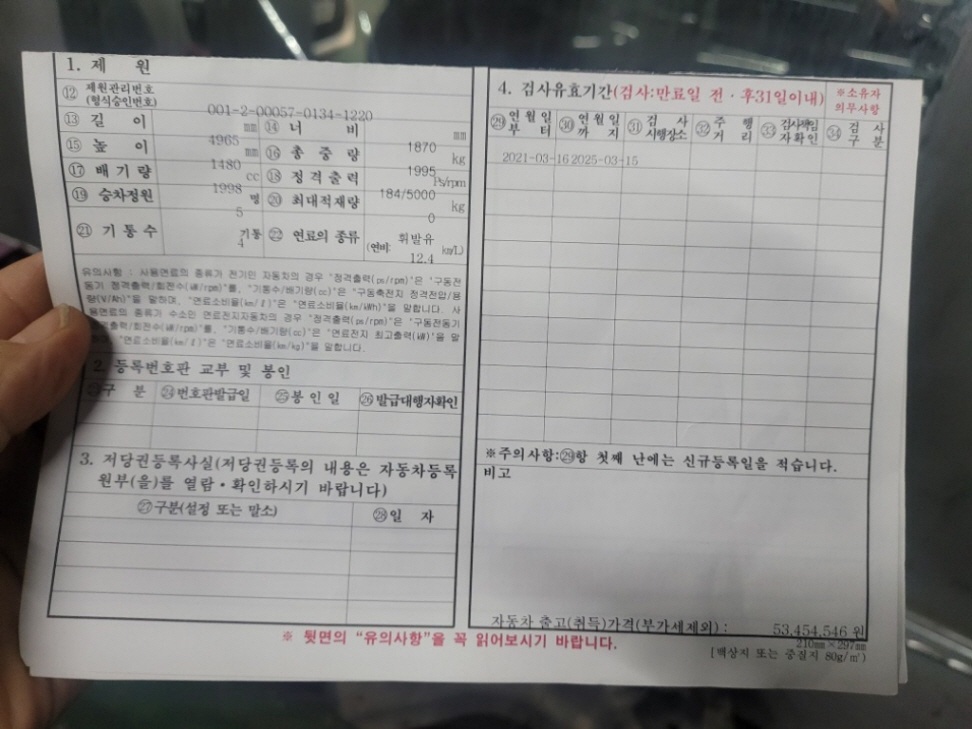 1. 제 원
⑫ 제원관리번호
(형식승인번호)
001-2-00057-0134-1220
⑬ 길 이
4965 mm
⑭ 너 비
1870 mm
⑮ 높 이
1480 mm
⑯ 총 중 량
1995 kg
⑰ 배 기 량
1998 cc
⑱ 정 격 출 력
184/5000 Ps/rpm
⑲ 승차정원
5 명
⑳ 최대적재량
0 kg
㉑ 기 통 수
4 기통
㉒ 연료의 종류
휘발유
(연비: 12.4 km/L)
유의사항 : 사용연료의 종류가 전기인 자동차의 경우 "정격출력(ps/rpm)"은 "구동전
동기 정격출력/회전수(kW/rpm)"를, "기통수/배기량(cc)"은 "구동축전지 정격전압/용
량(V/Ah)"을 말하며, "연료소비율(km/ℓ)"은 "연료소비율(km/kWh)"을 말합니다. 사
용연료의 종류가 수소인 연료전지자동차의 경우 "정격출력(ps/rpm)"은 "구동전동기
출력/회전수(kW/rpm)"를, "기통수/배기량(cc)"은 "연료전지 최고출력(kW)"을 말
"연료소비율(km/ℓ)"은 "연료소비율(km/kg)"을 말합니다.
2. 등록번호판 교부 및 봉인
㉓구 분
㉔번호판발급일
㉕봉 인 일
㉖발급대행자확인
3. 저당권등록사실(저당권등록의 내용은 자동차등록
원부(을)를 열람·확인하시기 바랍니다)
㉗구분(설정 또는 말소)
㉘일 자
4. 검사유효기간(검사:만료일 전·후31일이내)
※소유자
의무사항
㉙연 월 일
부 터
㉚연 월 일
까 지
㉛검 사
시행장소
㉜주 행
거 리
㉝검사책임
자확인
㉞검 사
구 분
2021-03-16 2025-03-15
※주의사항:㉙항 첫째 난에는 신규등록일을 적습니다.
비고
자동차 출고(취득)가격(부가세제외) : 53,454,546 원
210㎜×297㎜
[백상지 또는 중질지 80g/㎡]
※ 뒷면의 "유의사항"을 꼭 읽어보시기 바랍니다.